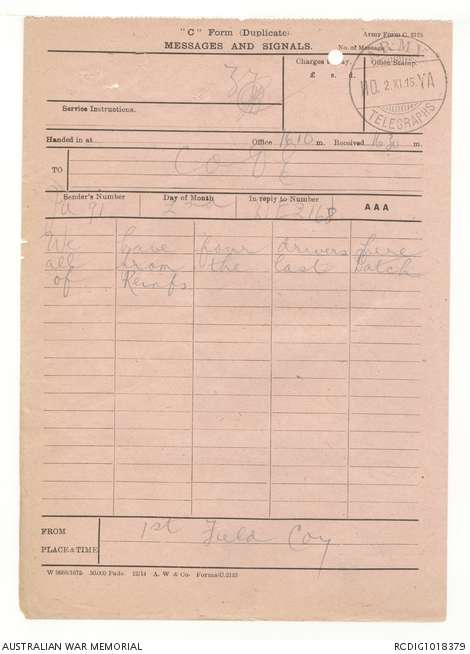 "C" Form (Duplicate).
Army Form C. 2123
MESSAGES AND SIGNALS.
No. of Message
Charges to Pay.
£ s. d.
Office Stamp.
ARMY
2.XI.15
TELEGRAPHS
Service Instructions.
Handed in at Office 1610 m. Received m.
TO
Sender's Number Day of Month In reply to Number AAA
91 2nd
We have four drivers here
all from the last batch
of Reinfs
FROM 1st Field Coy
PLACE & TIME
50,000 Pads. 12/14 A. W & Co. Forms/C.2123
AUSTRALIAN WAR MEMORIAL RCDIG1018379